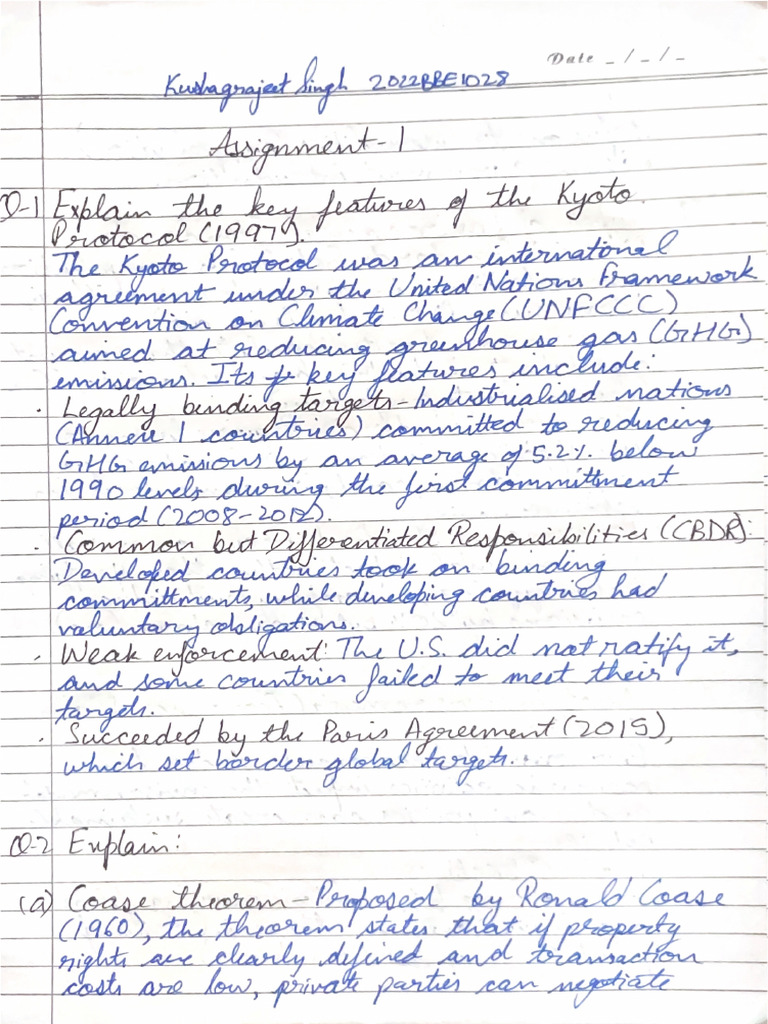 Date _/_/_
Kushagrajeet Singh 2022BBE1028
Assignment-1
Q-1 Explain the key features of the Kyoto
Protocol (1997).
The Kyoto Protocol was an international
agreement under the United Nations Framework
Convention on Climate Change (UNFCCC)
aimed at reducing greenhouse gas (GHG)
emissions. Its key features include:
. Legally binding targets - Industrialised nations
(Annex 1 countries) committed to reducing
GHG emissions by an average of 5.2% below
1990 levels during the first committment
period (2008-2012).
. Common but Differentiated Responsibilities (CBDR):
Developed countries took on binding
committments, while developing countries had
voluntary obligations.
. Weak enforcement: The U.S. did not ratify it,
and some countries failed to meet their
targets.
. Succeeded by the Paris Agreement (2015),
which set border global targets.
Q-2 Explain:
(a) Coase theorem - Proposed by Ronald Coase
(1960), the theorem states that if property
rights are clearly defined and transaction
costs are low, private parties can negotiate